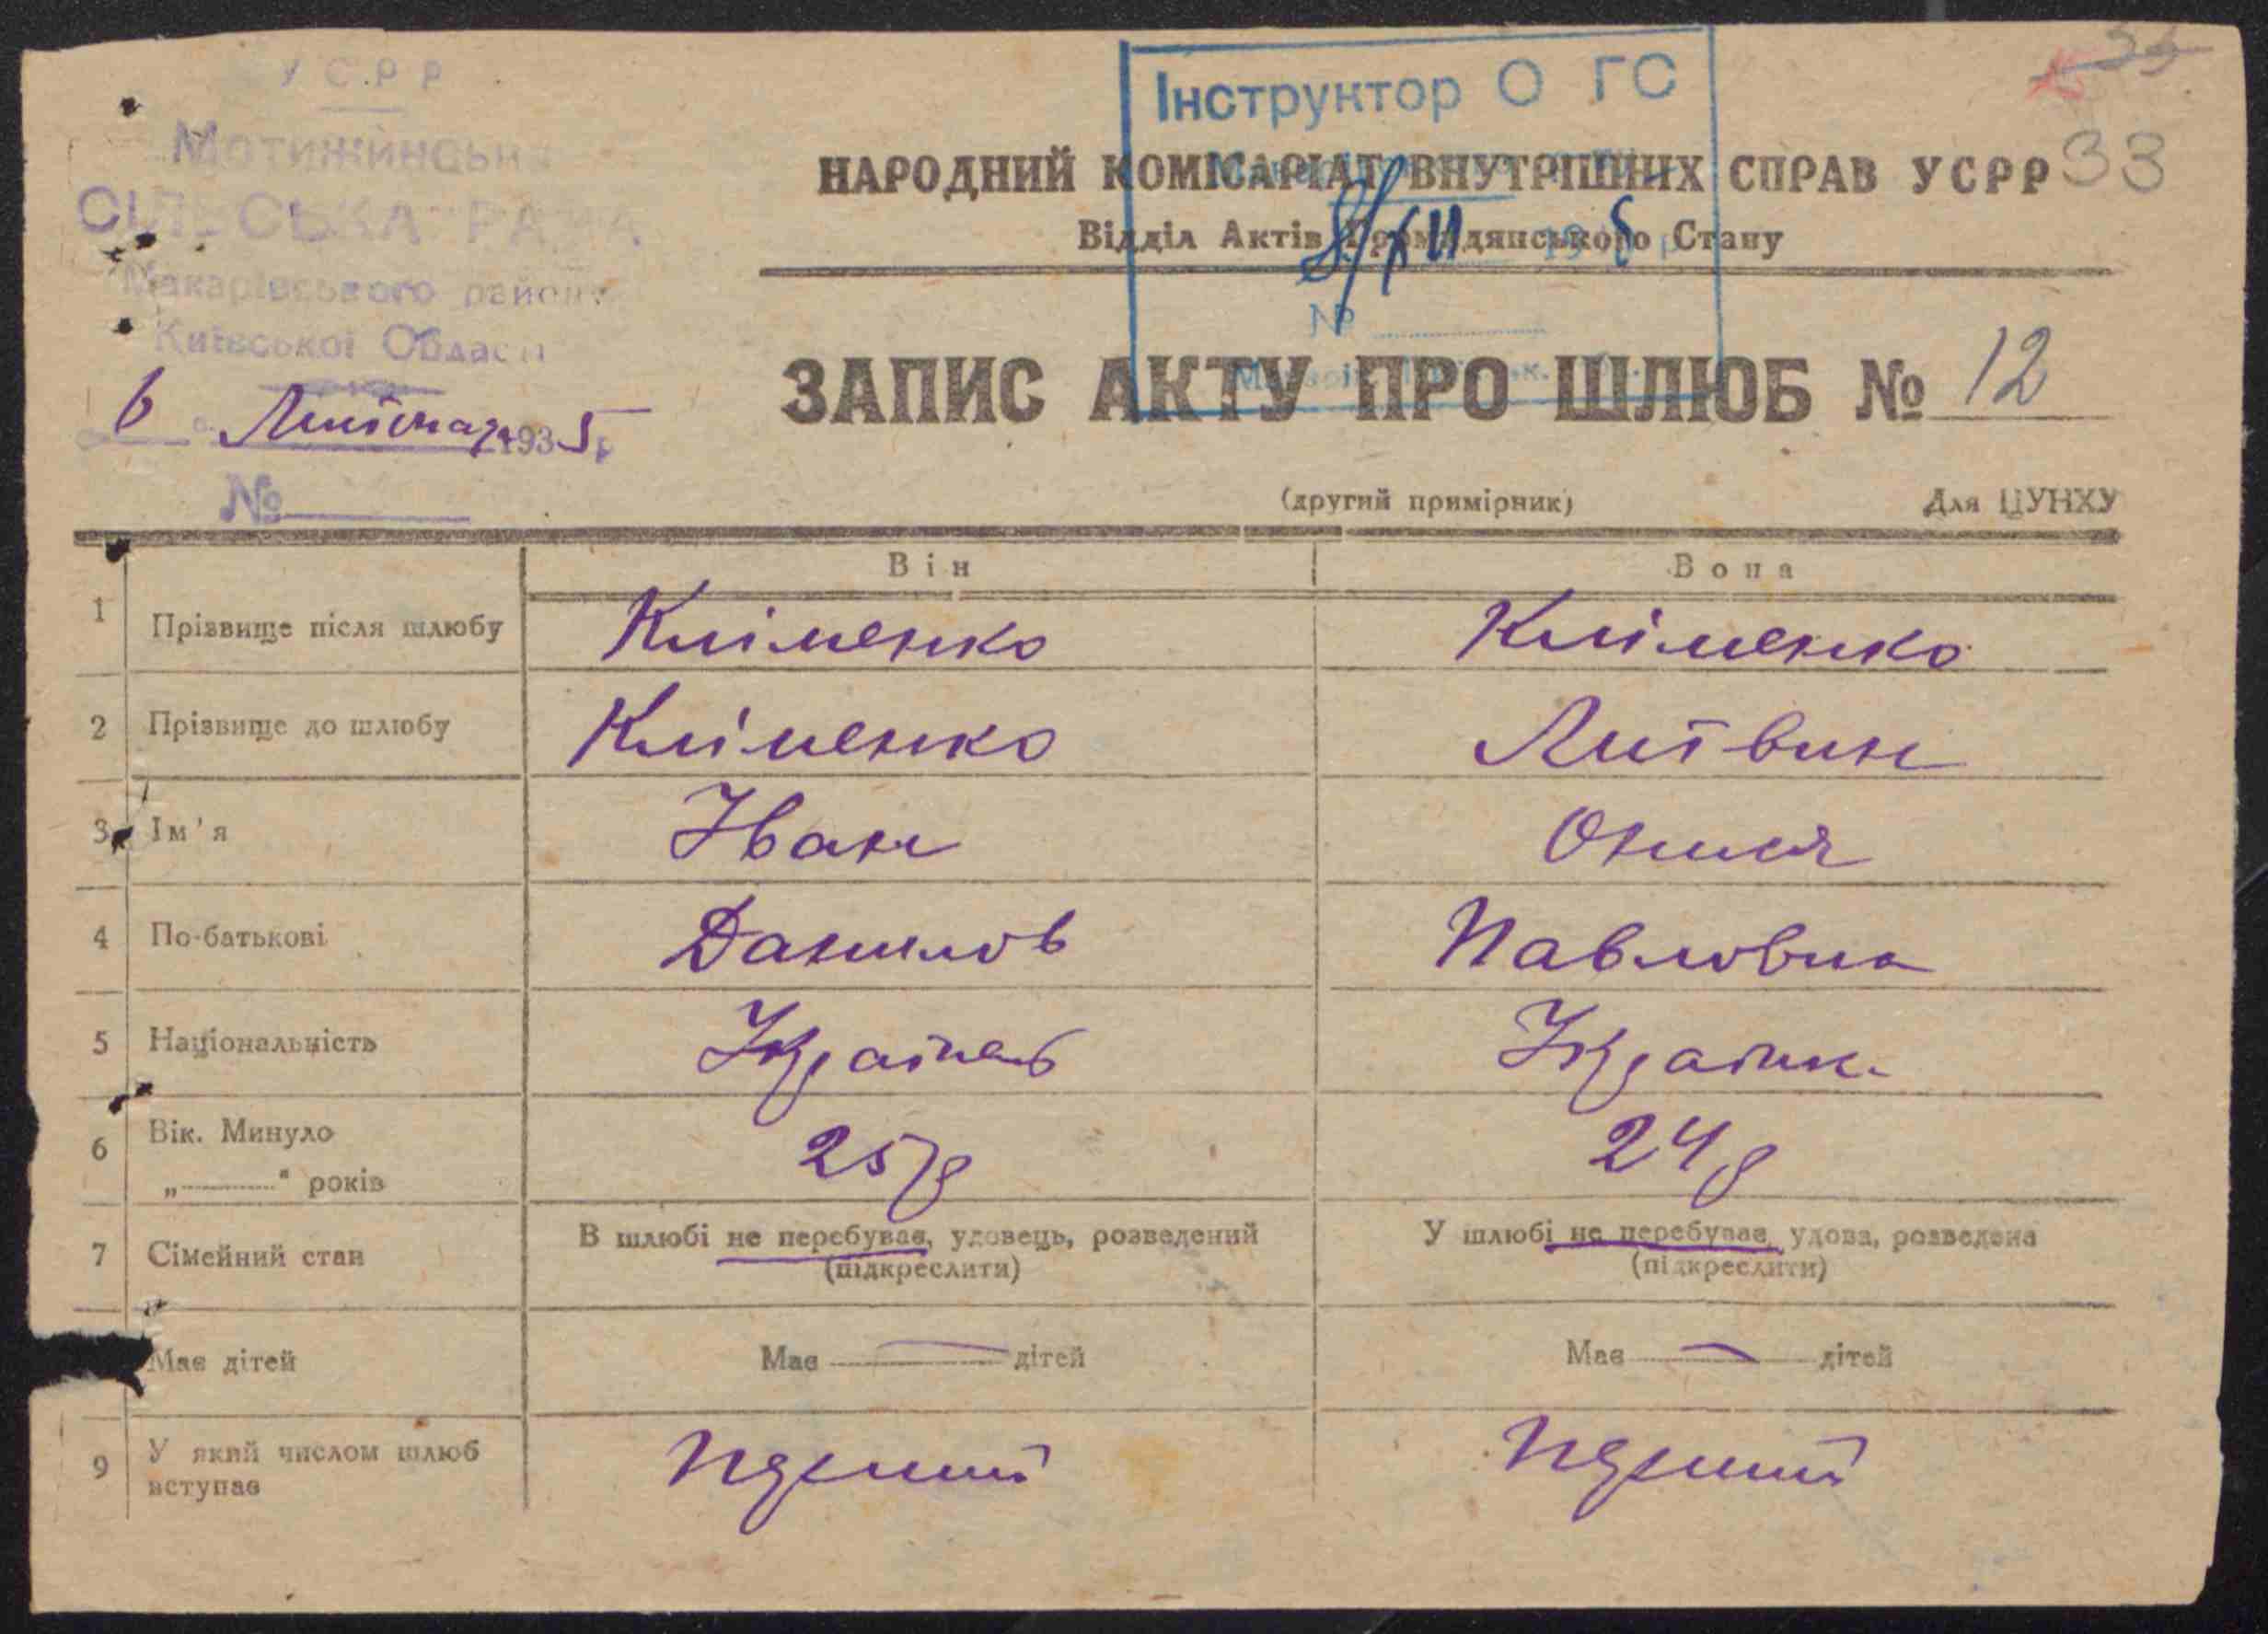 У С Р Р
Мотижинська
СІЛЬСЬКА РАДА
Макарівського району
Київської Області
6 Листопад 1935 р
№
Інструктор О ГС
33
НАРОДНИЙ КОМІСАРІАТ ВНУТРІШНІХ СПРАВ УСРР
Відділ Актів Громадянського Стану
8/XII 1935
№
ЗАПИС АКТУ ПРО ШЛЮБ № 12
(другий примірник) Для ЦУНХУ
Він Вона
1 Прізвище після шлюбу Кліменко Кліменко
2 Прізвище до шлюбу Кліменко Литвин
3 Ім'я Іван
4 По-батькові Данилов Павловна
5 Національність Украінець Украінк.
6 Вік. Минуло
„ “ років 25 р 24 р
7 Сімейний стан В шлюбі не перебуває, удовець, розведений У шлюбі не перебуває, удова, розведена
(підкреслити) (підкреслити)
Має дітей Має — дітей Має — дітей
9 У який числом шлюб
вступає Перший Перший